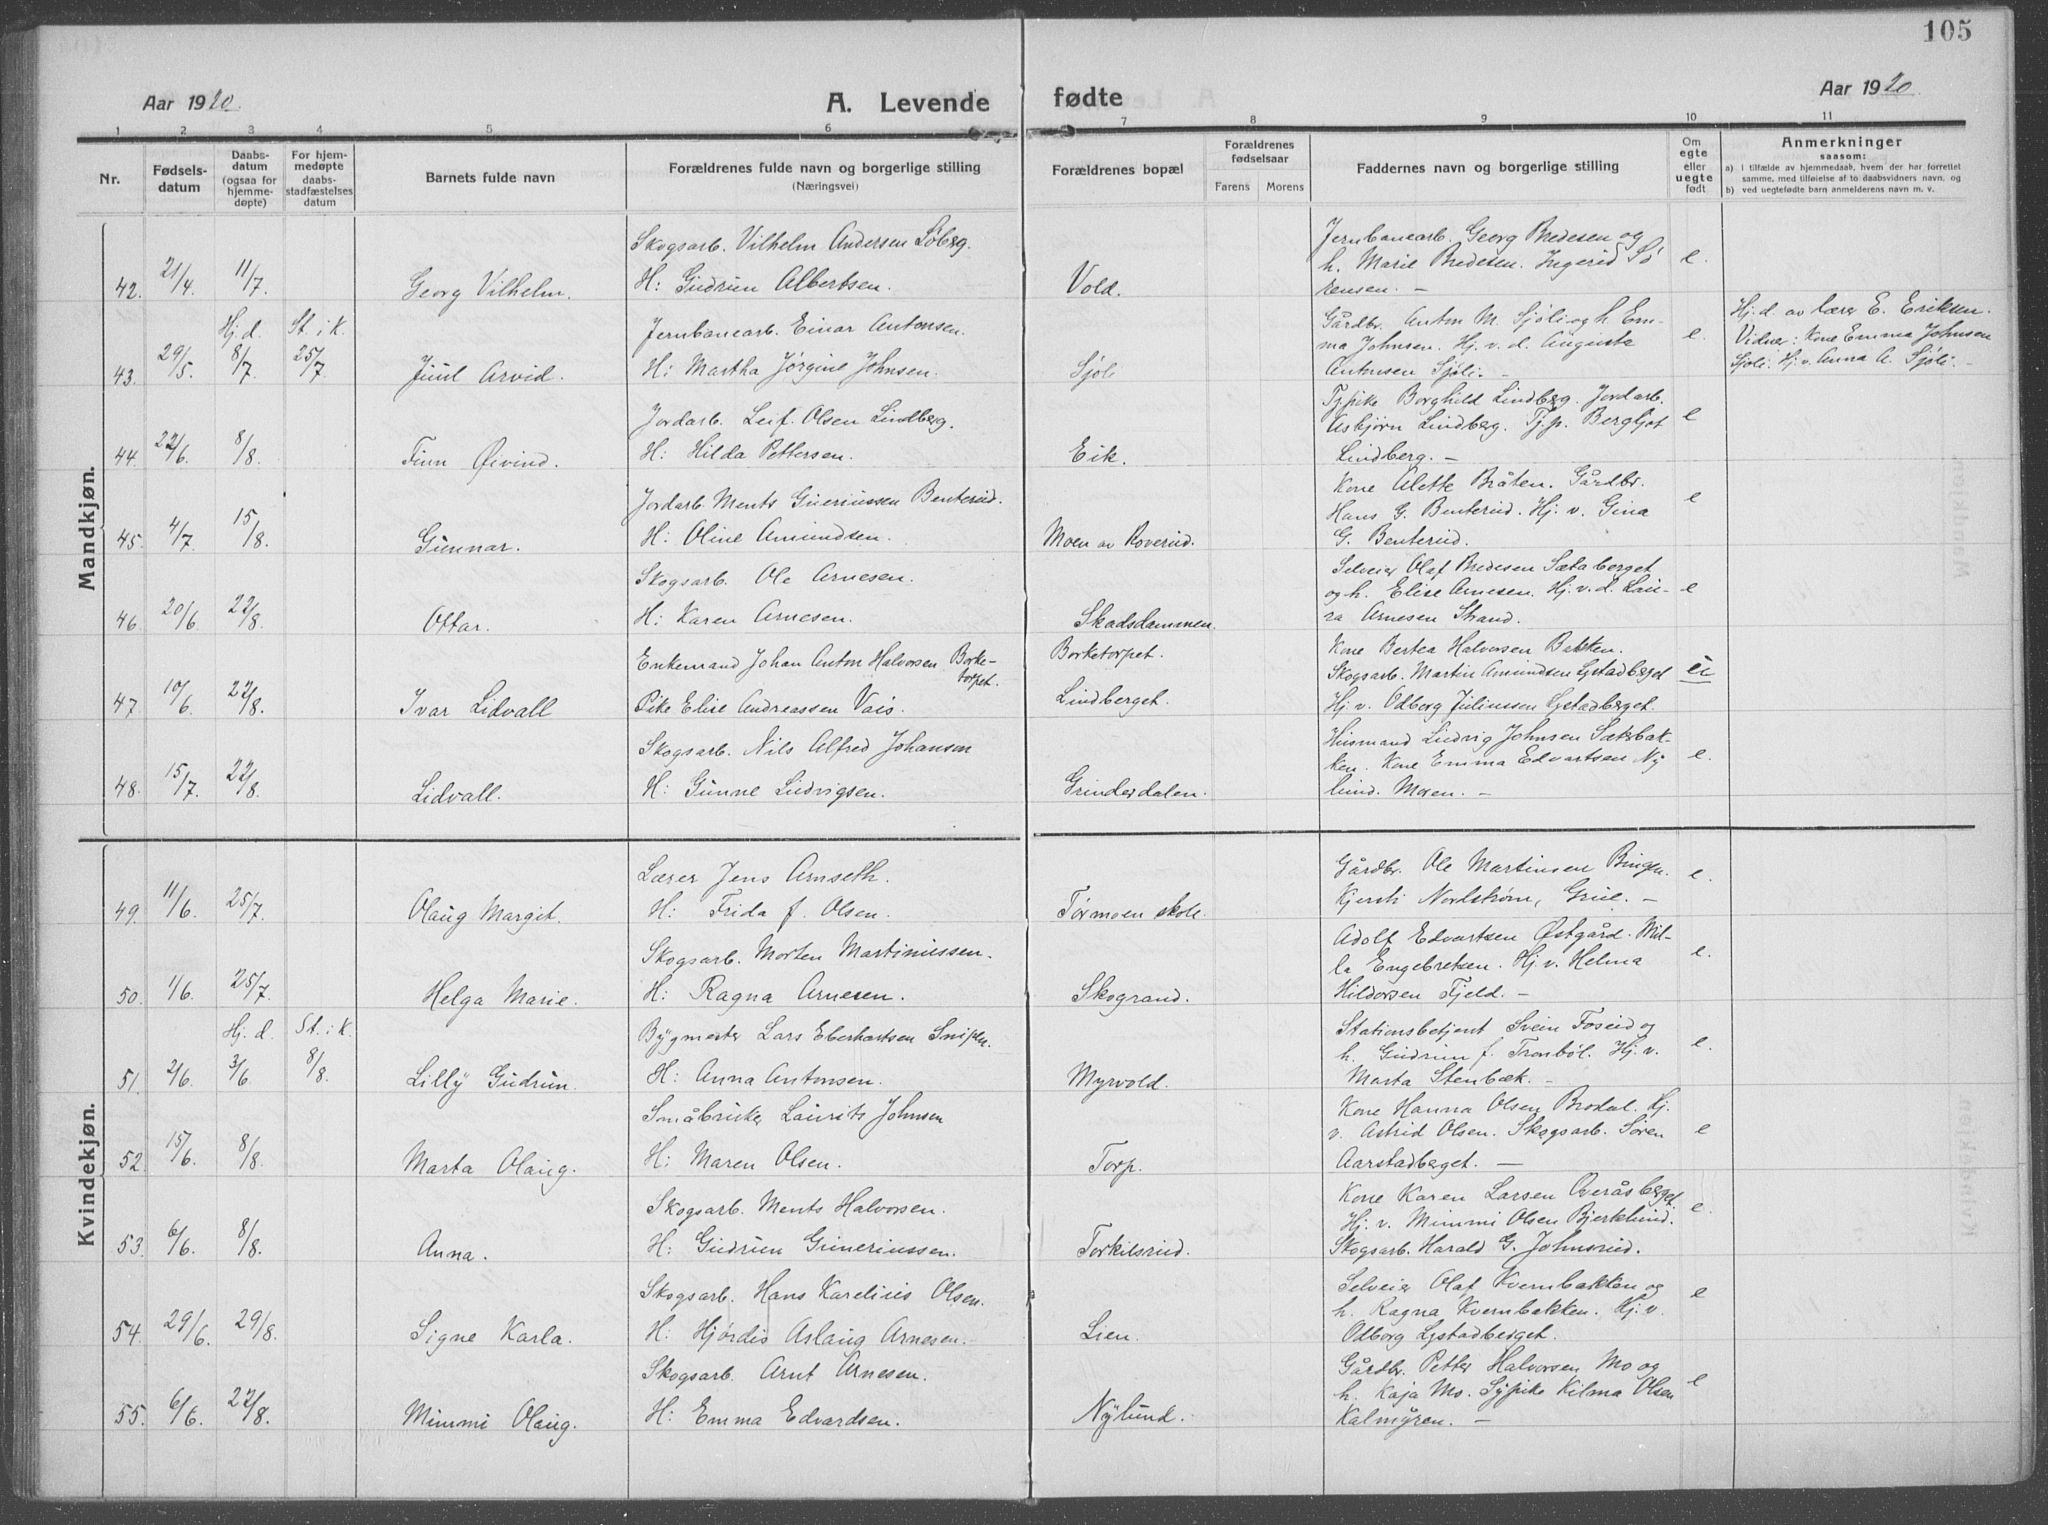 105
Aar 1920.
A. Levende
fødte
Aar 1920.
1 2 3 4 5 6 7 8 9 10 11
Nr.
Fødsels-
datum
Daabs-
datum
(ogsaa for
hjemme-
døpte)
For hjem-
medøpte
daabs-
stadfæstelses
datum
Barnets fulde navn
Forældrenes fulde navn og borgerlige stilling
(Næringsvei)
Forældrenes bopæl
Forældrenes
fødselsaar
Farens Morens
Faddernes navn og borgerlige stilling
Om
egte
eller
uegte
født
Anmerkninger
saasom:
a) i tilfælde av hjemmedaab, hvem der har forrettet
samme, med tilføielse af to daabsvidners navn, og
b) ved uegtefødte barn anmelderens navn m. v.
Mandkjøn.
Skogsarb. Vilhelm Andersen Løberg.
42. 21/4. 11/7. Georg Vilhelm. H: Gudrun Albertsen. Vold.
Jernbanearb. Georg Bredesen og
h. Marie Bredesen. Ingerid Sø
rensen. –
e.
Hj. d. St. i K.
Jernbanearb. Einar Antonsen.
43. 29/5. 8/7. 25/7 Juul Arvid. H: Martha Jørgine Johnsen. Sjøli
Gårdbr. Anton M. Sjøli og h. Em-
ma Johnsen. Hj. v. d. Auguste
Antonsen Sjøli. –
e.
Hj. d. av lærer E. Eriksen.
Vidner: Kone Emma Johnsen
Sjøli. Hj. v. Anna A. Sjøli. –
Jordarb. Leif. Olsen Lindberg.
44. 22/6. 8/8. Finn Øivind. H: Hilda Pettersen. Eik.
Tj.pike Borghild Lindberg. Jordarb.
Asbjørn Lindberg. Tj.p. Bergljot
Lindberg. –
e
Jordarb. Ments Gueriussen Benterud.
45. 4/7. 15/8. Gunnar. H: Oline Amundsen. Moen av Roverud.
Kone Alette Bråten. Gårdbr.
Hans G. Benterud. Hj. v. Gina
G. Benterud.
e
Skogsarb. Ole Arnesen.
46. 20/6. 22/8. Ottar. H: Karen Arnesen. Skadsdammen.
Selveier Olaf Bredesen Sætaberget
og h. Elise Arnesen. Hj. v. d. Lau-
ra Arnesen Strand.
e
Enkemand Johan Anton Halvorsen Borke-
torpet.
47. 10/6. 22/8. Ivar Lidvall Pike Elise Andreassen Vais.
Borketorpet.
Lindberget.
Kone Bertea Halvorsen Bakken.
Skogsarb. Martin Amundsen Lystadberget
Hj. v. Odberg Juliussen Lystadberget.
u
Skogsarb. Nils Alfred Johansen
48. 15/7. 22/8. Lidvall. H: Gunne Ludvigsen. Grinderdalen.
Husmand Ludvig Johnsen Sæterbak-
ken. Kone Emma Edvartsen Ny
lund. Moen. –
e.
Kvindekjøn.
Lærer Jens Arnseth.
49. 11/6. 25/7. Olaug Margit. H: Frida f. Olsen. Tørmoen skole.
Gårdbr. Ole Martinsen Bingen.
Kjersti Nordstrøm, Grue. –
e.
Skogsarb. Morten Martinussen.
50. 1/6. 25/7. Helga Marie. H: Ragna Arnesen. Skogrand.
Adolf Edvartsen Østgård. Mil-
la Engebretsen. Hj. v. Helma
Hildorsen Fjeld. –
e.
Hj. d. St. i K.
Bygmester Lars Eberhartsen Snipen.
51. 2/6. 3/6 8/8. Lilly Gudrun. H: Anna Antonsen. Myrvold.
Stationsbetjent Svein Foseid og
h. Gudrun f. Tronbøl. Hj. v.
Marta Stenbæk. –
e.
Småbruker Laurits Johnsen
52. 15/6. 8/8. Marta Olaug. H: Maren Olsen. Torp.
Kone Hanna Olsen Brodal. Hj.
v. Astrid Olsen. Skogsarb. Søren
Aarstadberget. –
e
Skogsarb. Ments Halvorsen.
53. 6/6. 8/8. Anna. H: Gudrun Guneriussen. Torkilsrud.
Kone Karen Larsen Overåsberget.
Hj. v. Mimmi Olsen Bjerklund.
Skogsarb. Harald G. Johnsrud.
e.
Skogsarb. Hans Karelius Olsen.
54. 29/6. 29/8. Signe Karla. H: Hjørdis Aslaug Arnesen. Lien.
Selveier Olaf Kvernbakken og
h. Ragna Kvernbakken. Hj. v.
Odborg Lystadberget.
e
Skogsarb. Arnt Arnesen.
55. 6/6. 22/8. Mimmi Olaug. H: Emma Edvardsen. Nylund.
Gårdbr. Petter Halvorsen Mo og
h. Kaja Mo. Sypike Kilma Olsen
Kalmyren. –
e